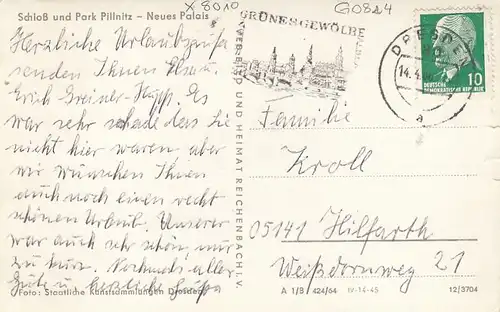 X 8010
G0814
Schloß und Park Pillnitz – Neues Palais
Herzliche Urlaubsgrüße
senden Ihnen Elsa u.
Erich Greiner-Hupp. Es
war sehr schade dass Sie
nicht hier waren, aber
wir wünschen Ihnen
auch noch einen recht
schönen Urlaub. Unserer
war auch sehr schön, nur
zu kurz. Nochmals alles
Gute u. herzliche Grüße
Foto: Staatliche Kunstsammlungen Dresden
BILD UND HEIMAT REICHENBACH I. V.
GRÜNES GEWÖLBE
DRESDEN
14.4.
a
10
DEUTSCHE
DEMOKRATISCHE REPUBLIK
Familie
Kroll
05141 Hilfarth
Weißdornweg 21
A 1/B 424/64 IV-14-45 12/3704